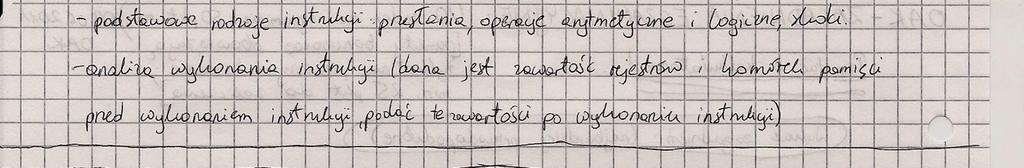 - podstawowe rodzaje instrukcji: przesłania, operacje arytmetyczne i logiczne, skoki.
- analiza wykonania instrukcji (dana jest zawartość rejestrów i komórek pamięci
przed wykonaniem instrukcji, podać te zawartości po wykonaniu instrukcji)